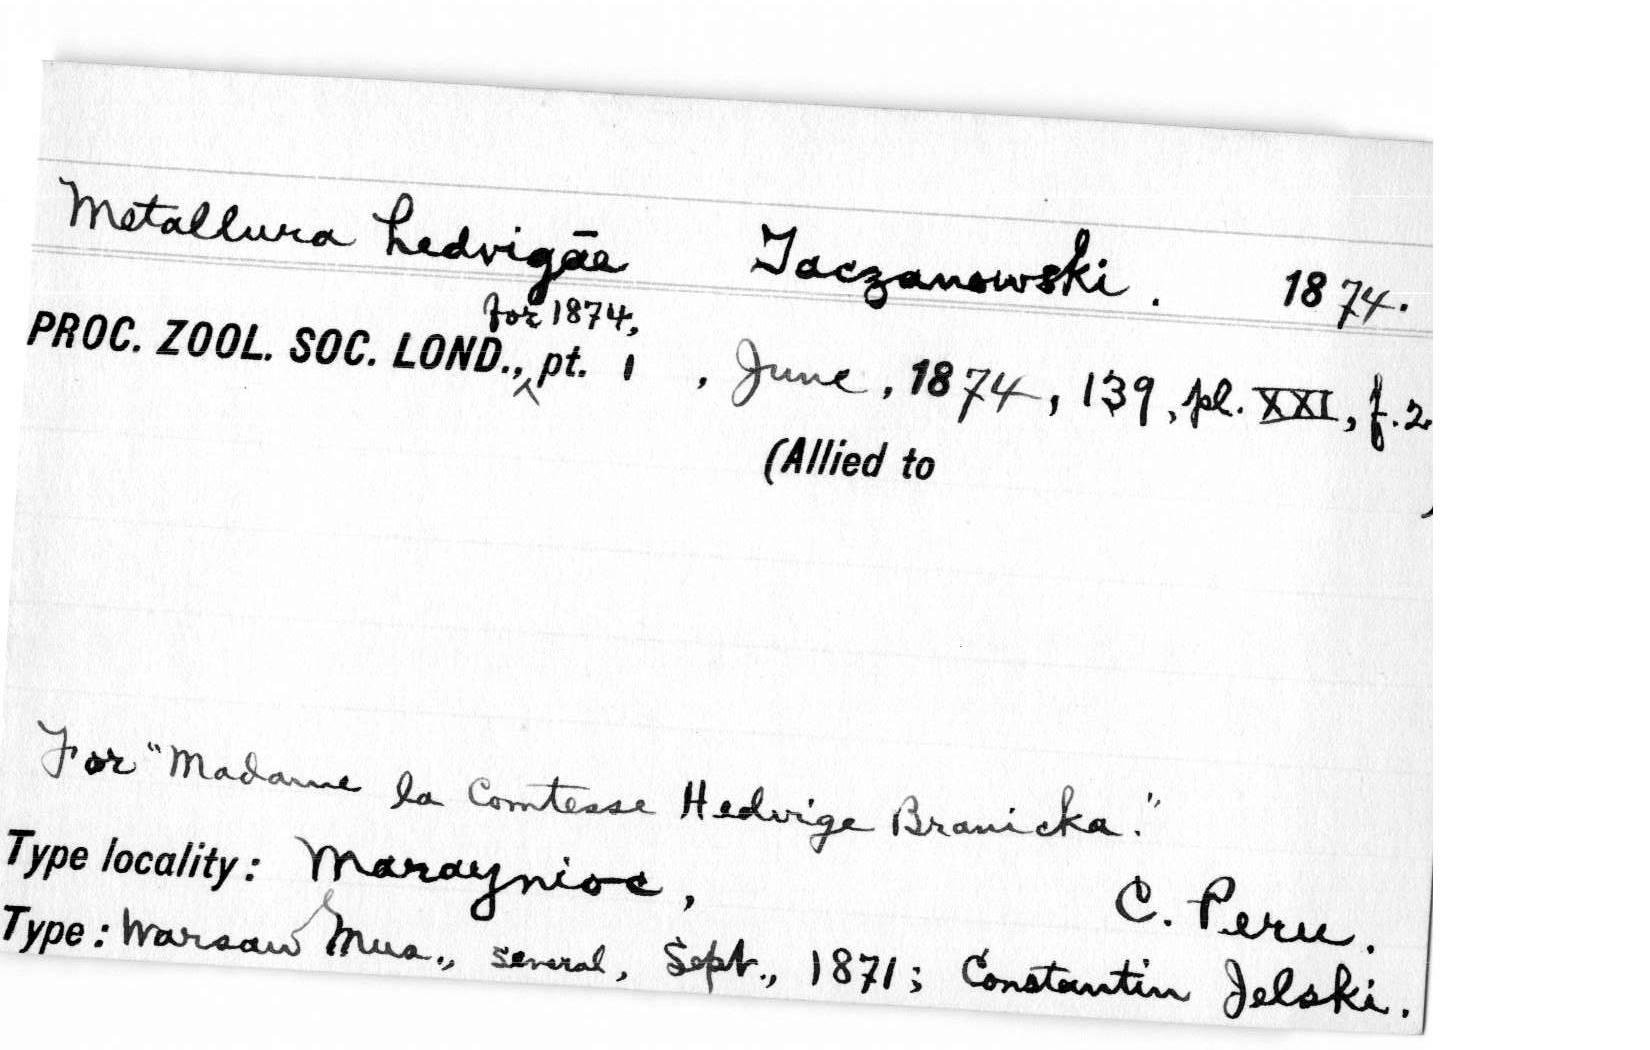 Metallura hedvigāe Taczanowski. 1874.
for 1874,
PROC. ZOOL. SOC. LOND., pt. 1, June, 1874, 139, pl. XXI, f.2.
(Allied to )
For "Madame la Comtesse Hedvige Branicka."
Type locality: Maraynioc, C. Peru.
Type: Warsaw Mus., several, Sept., 1871; Constantin Jelski.